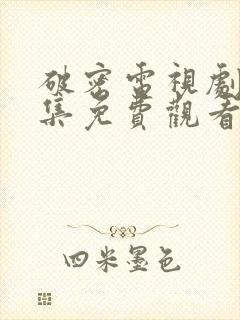 破密雷視劇
集免費觀看
四米墨色